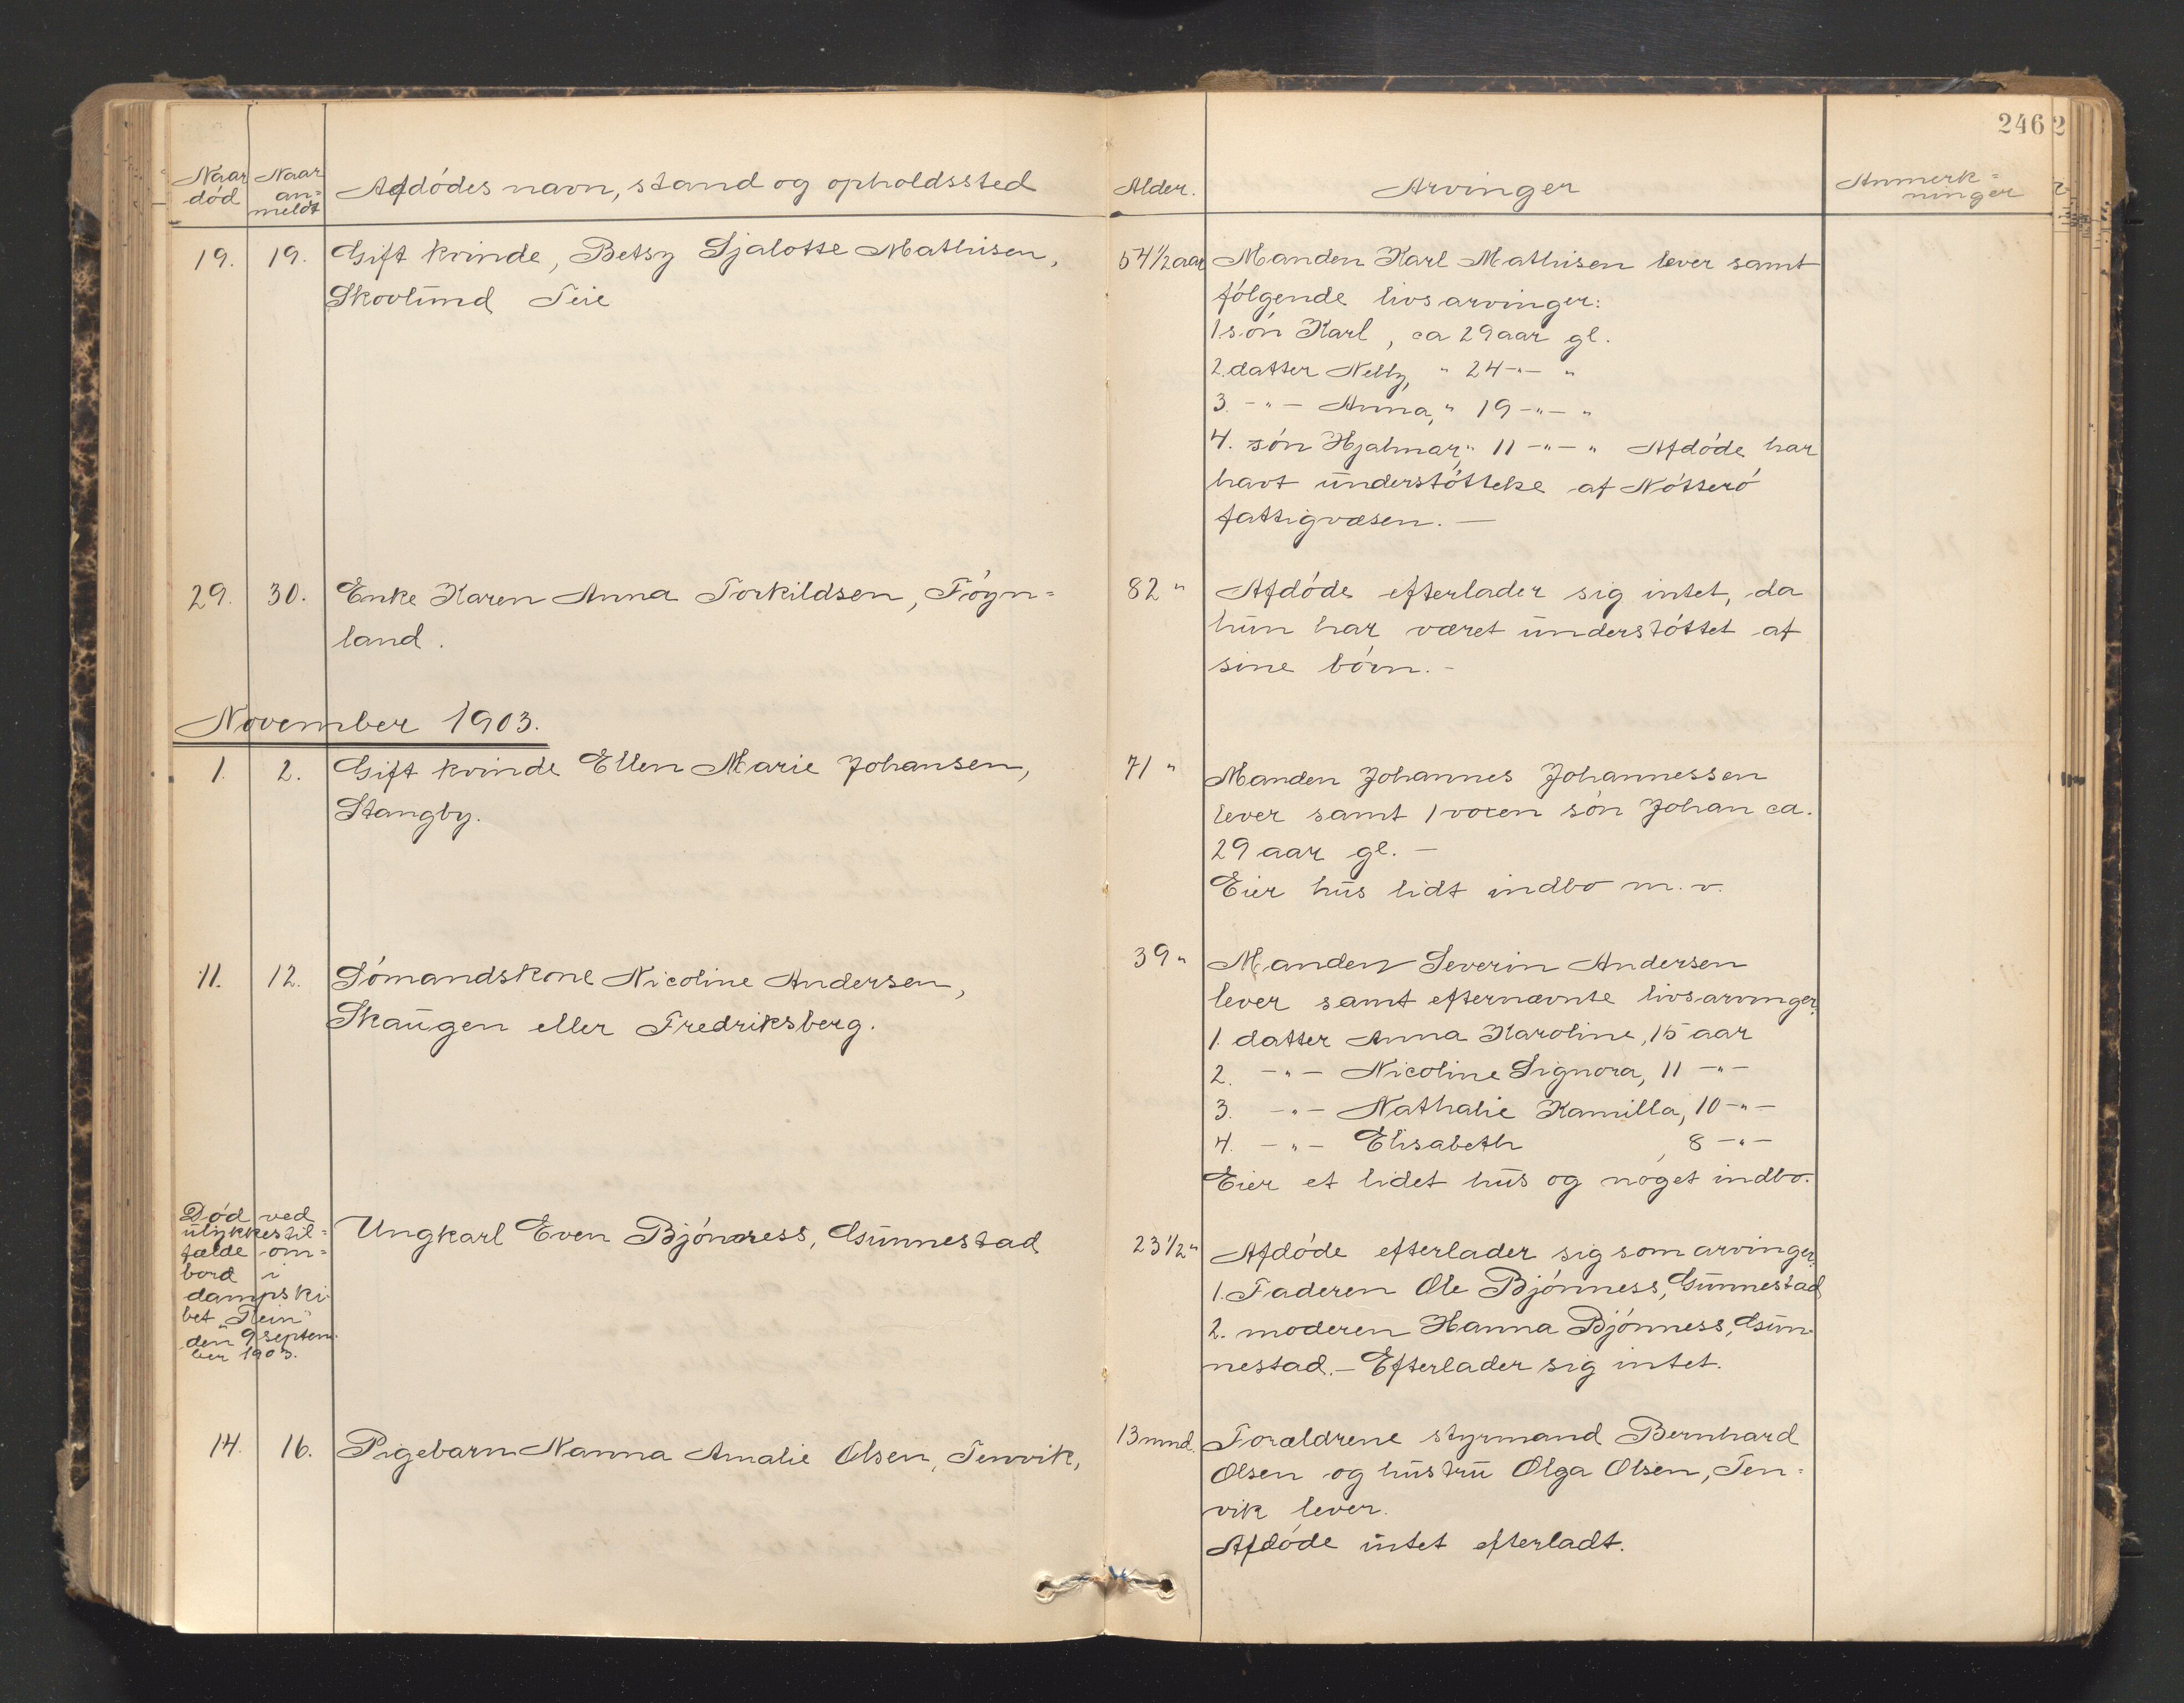 246
Naar død
Naar an=
meldt
Afdódes navn, stand og opholdssted
Alder.
Arvinger
Anmerk=
ninger
19. 19. Gift kvinde, Betsy Sjalotte Mathisen,
Skovlund Teie
54 1/2 aar
Manden Karl Mathisen lever samt
fólgende livsarvinger:
1 són Karl, ca 29 aar gl.
2. datter Nelly, " 24 -"- "
3. -"- Anna, " 19 -"- "
4. són Hjalmar, " 11 -"- " Afdóde har
havt understóttelse af Nótteró
fattigvæsen. —
29. 30. Enke Karen Anna Torkildsen, Fóyn=
land.
82 "
Afdóde efterlader sig intet, da
hun har været understóttet af
sine bórn. -
November 1903.
1. 2. Gift kvinde Ellen Marie Johansen,
Stangby.
71 "
Manden Johannes Johannessen
lever samt 1 voxen són Johan ca.
29 aar gl. —
Eier hus lidt indbo m. v.
11. 12. Sómandskone Nicoline Andersen,
Skaugen eller Fredriksberg.
39 "
Manden Severin Andersen
lever samt efternævnte livsarvinger:
1. datter Anna Karoline, 15 aar
2. -"- Nicoline Signora, 11 -"-
3. -"- Nathalie Kamilla, 10 -"-
4. -"- Elisabeth , 8 -"-
Eier et lidet hus og noget indbo.
Død ved
ulykkestil=
fælde om=
bord i
dampski
bet "Rein"
den 9 septem
ber 1903.
Ungkarl Even Bjónness, Gunnestad
23 1/2 "
Afdóde efterlader sig som arvinger:
1. Faderen Ole Bjónness, Gunnestad
2. moderen Hanna Bjónness, Gun
nestad. — Efterlader sig intet.
14. 16. Pigebarn Nanna Amalie Olsen, Tenvik,
13 mnd.
Forældrene styrmand Bernhard
Olsen og hustru Olga Olsen, Ten=
vik lever.
Afdóde intet efterladt.